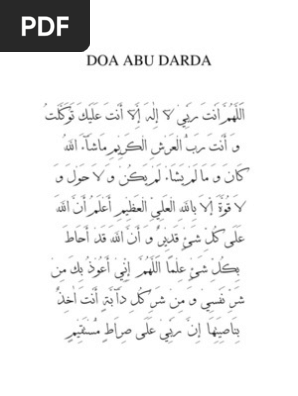 PDF
DOA ABU DARDA
اَللّٰهُمَّ اَنْتَ رَبِّيْ لَا إِلٰهَ إِلَّا أَنْتَ عَلَيْكَ تَوَكَّلْتُ
وَ أَنْتَ رَبُّ الْعَرْشِ الْكَرِيْمِ مَاشَآءَ اللهُ
كَانَ وَ مَا لَمْ يَشَا. لَمْ يَكُنْ وَ لَا حَوْلَ وَ
لَا قُوَّةَ إِلَّا بِاللهِ الْعَلِيِّ الْعَظِيْمِ أَعْلَمُ أَنَّ اللهَ
عَلَى كُلِّ شَيْءٍ قَدِيْرٌ وَ أَنَّ اللهَ قَدْ أَحَاطَ
بِكُلِّ شَيْءٍ عِلْمًا اَللّٰهُمَّ إِنِّي أَعُوْذُ بِكَ مِنْ
شَرِّ نَفْسِيْ وَ مِنْ شَرِّ كُلِّ دَآبَّةٍ أَنْتَ اٰخِذٌ
بِنَاصِيَتِهَا إِنَّ رَبِّيْ عَلَى صِرَاطٍ مُسْتَقِيْمٍ